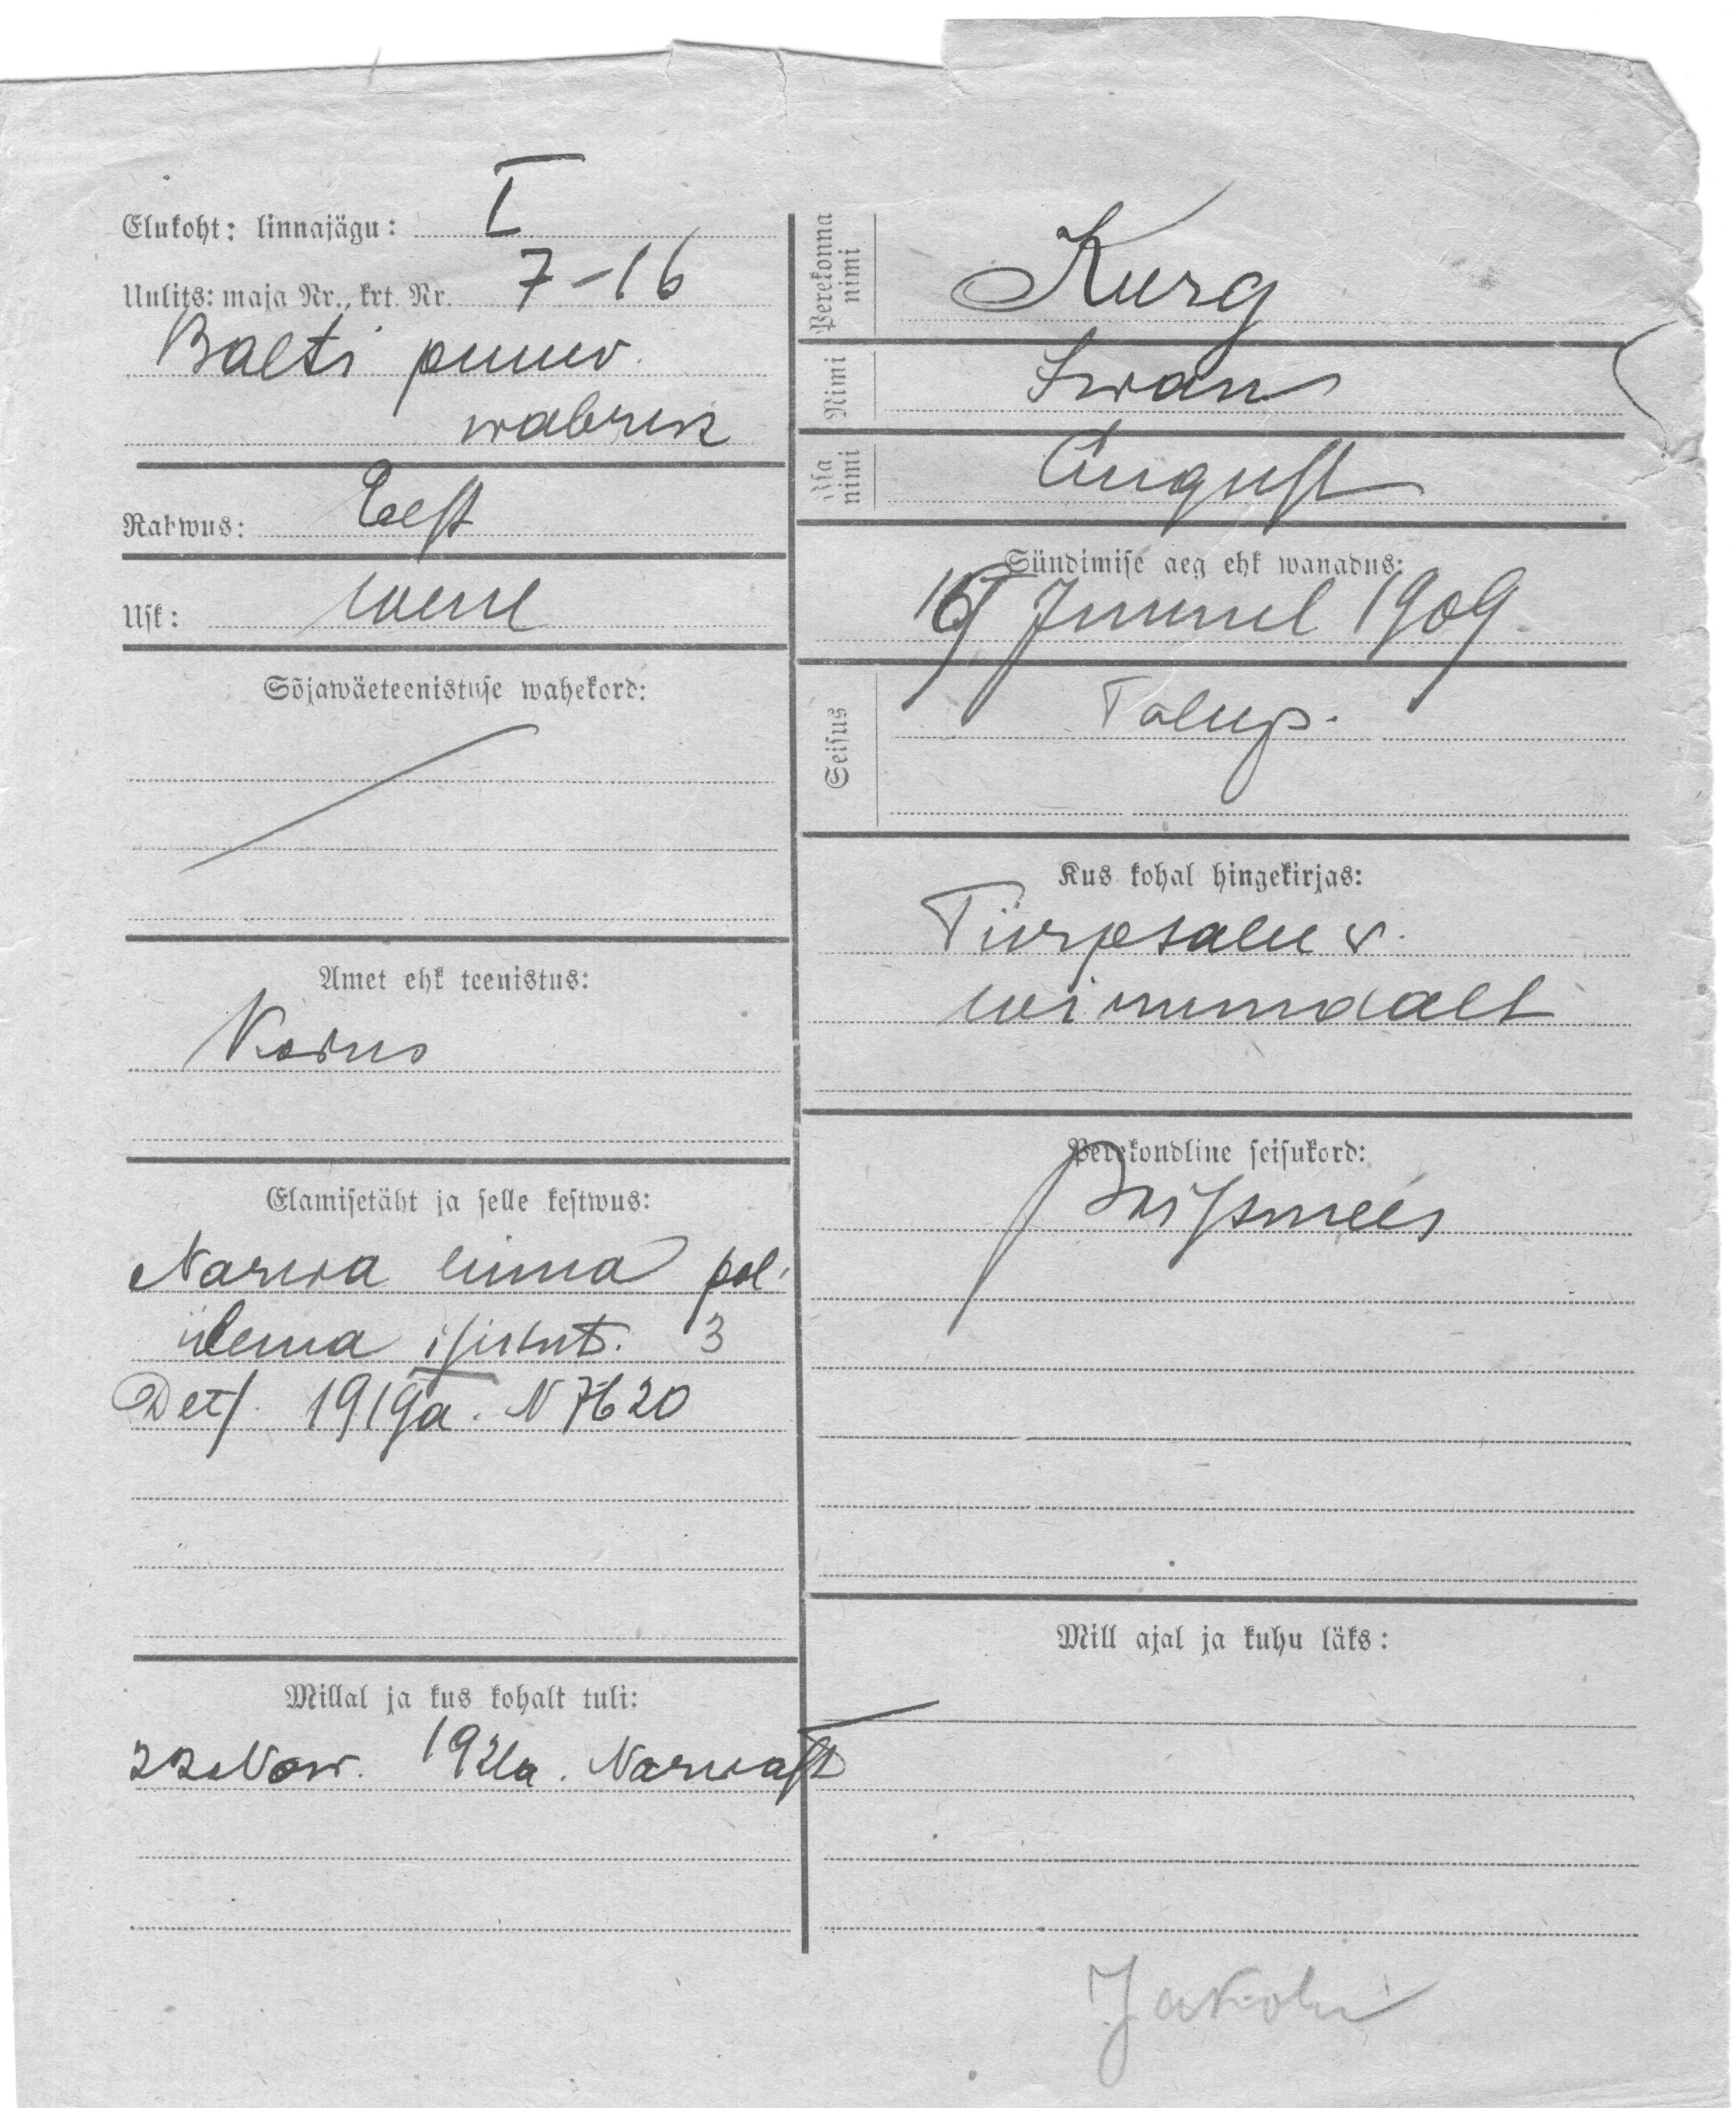 Elukoht: linnajägu: I
Uulits: maja Nr., krt. Nr. 7-16
Balti puuw.
wabrik
Rahwus: Eest
Usk: wene
Sõjawäeteenistuse wahekord:
Amet ehk teenistus:
Elamisetäht ja selle kestwus:
Narwa linna pol.
ülema isikut. 3
Dets. 1919a. N 7620
Millal ja kus kohalt tuli:
22 Now. 1921a. Narwast
Perekonna
nimi
Kurg
Nimi Iwan
Isa
nimi
August
Sündimise aeg ehk wanadus:
16 Juunil 1909
Seisus Talup.
Kus kohal hingekirjas:
Türpsalu w.
wirumaalt
Perekondline seisukord:
Mill ajal ja kuhu läks: